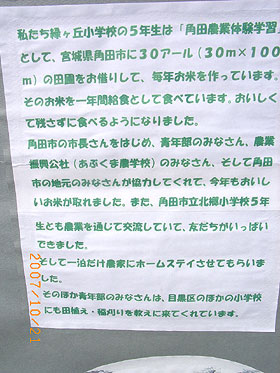 私たち緑ヶ丘小学校の5年生は「角田農業体験学習」
として、宮城県角田市に30アール(30m×100
m)の田圃をお借りして、毎年お米を作っています。
そのお米を一年間給食として食べています。おいしく
て残さずに食べるようになりました。
角田市の市長さんをはじめ、青年部のみなさん、農業
振興公社(あぶくま農学校)のみなさん、そして角田
市の地元のみなさんが協力してくれて、今年もおいし
いお米が取れました。また、角田市立北郷小学校5年
生とも農業を通じて交流していて、友だちがいっぱい
できました。
そして一泊だけ農家にホームステイさせてもらいま
した。
そのほか青年部のみなさんは、目黒区のほかの小学校
にも田植え・稲刈りを教えに来てくれています。
2007/10/21